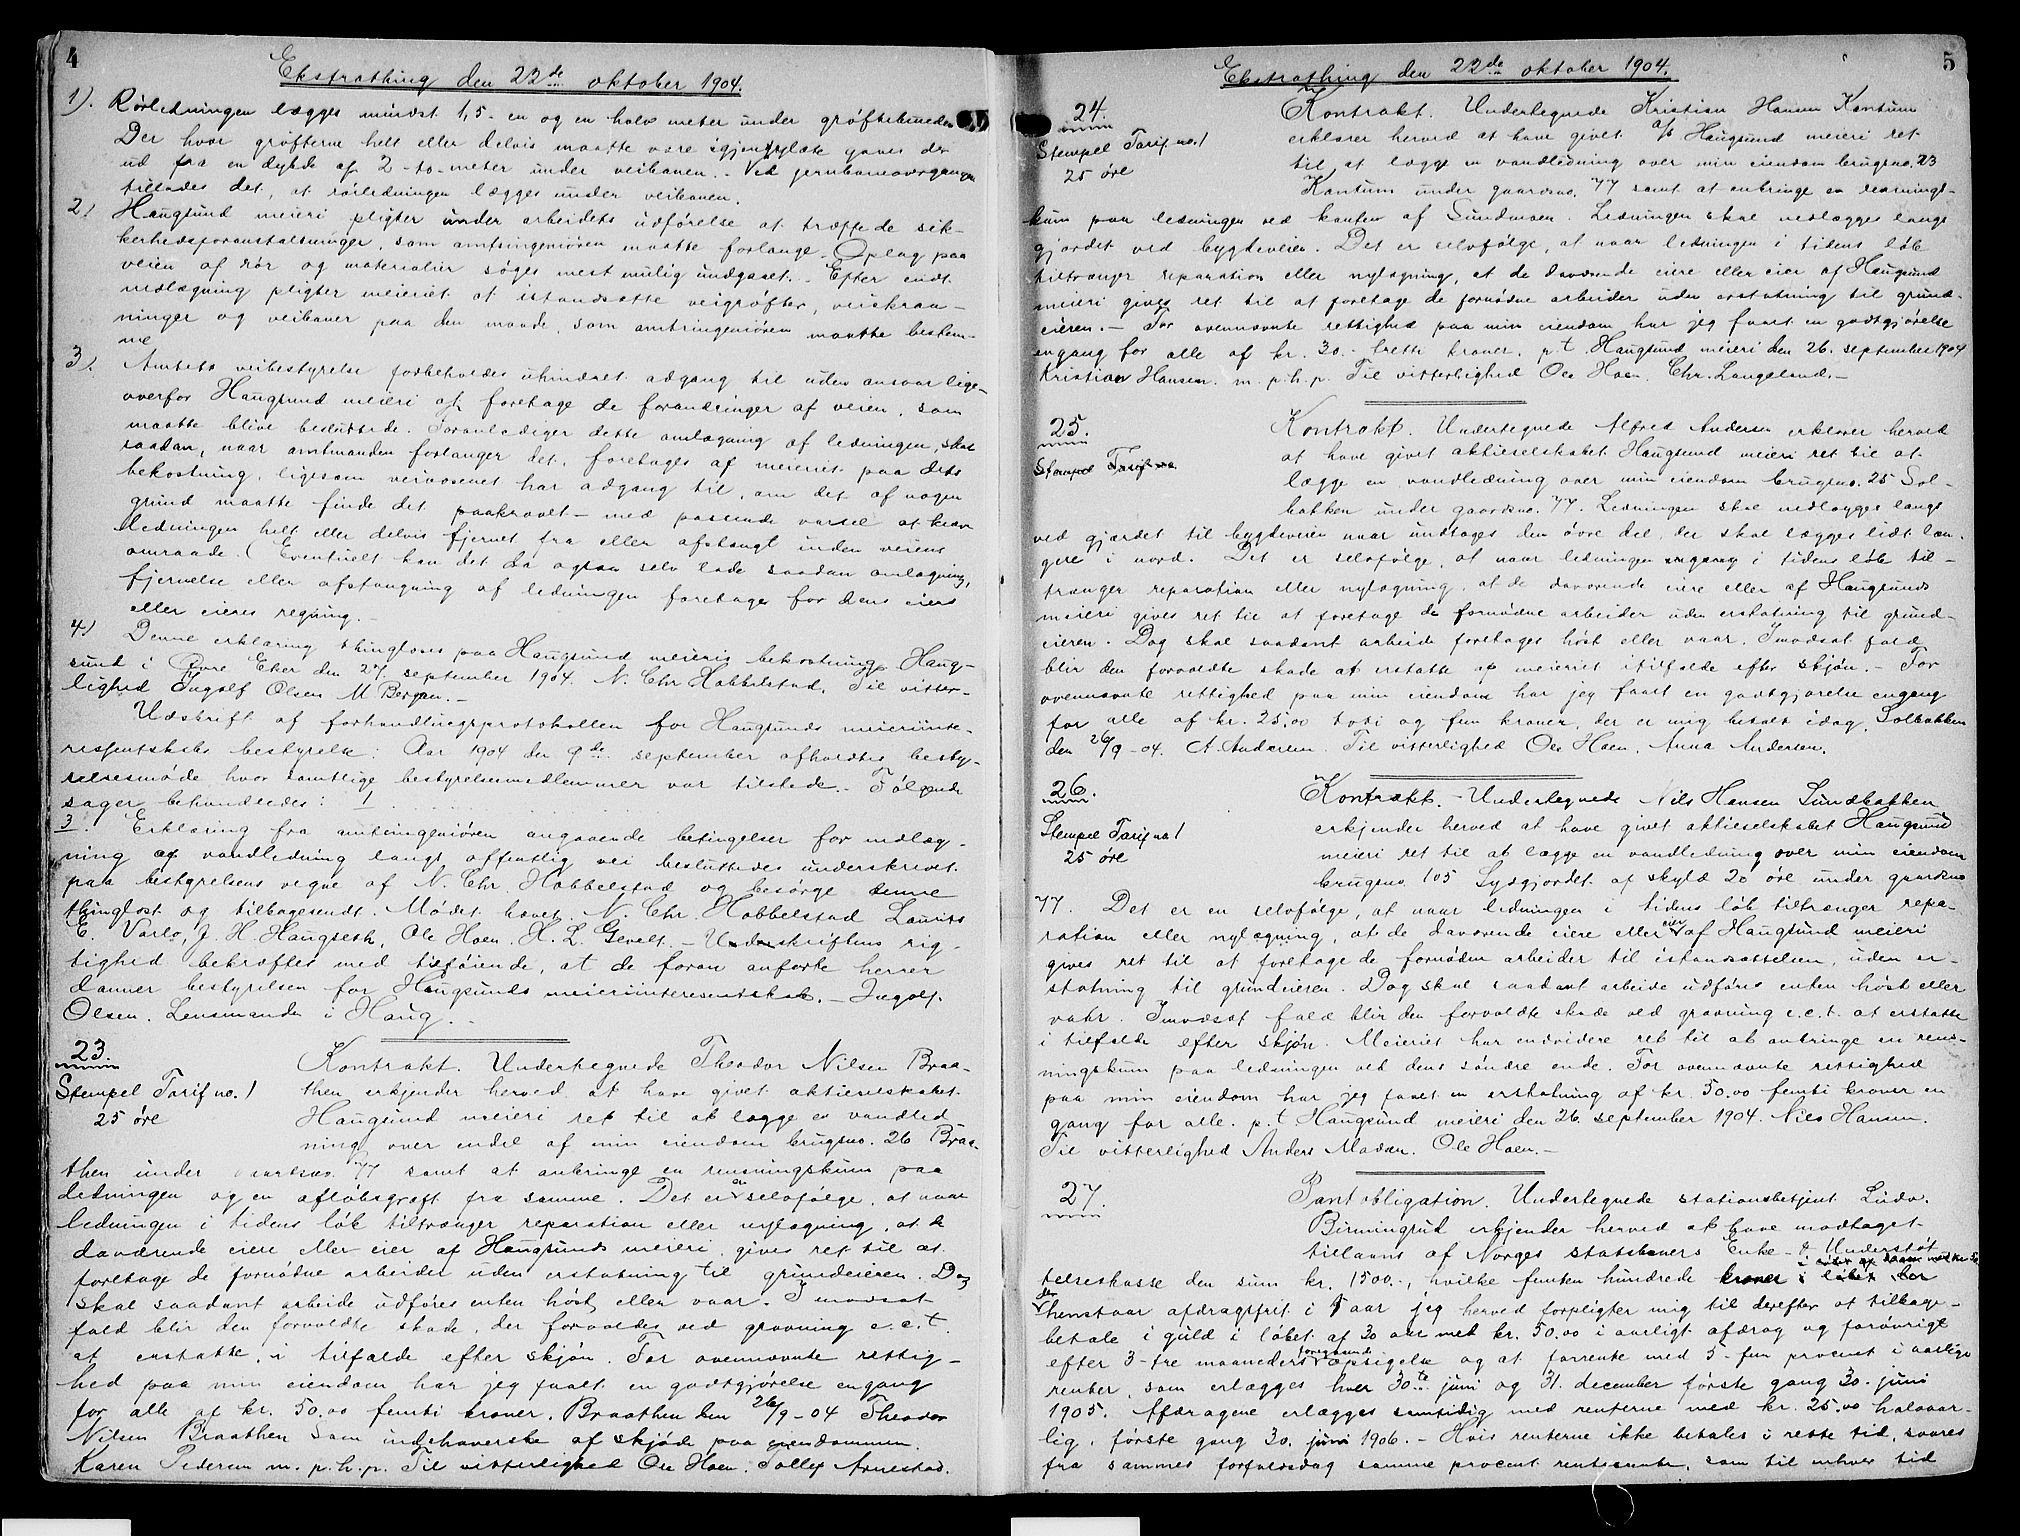 4
Ekstrathing den 22de oktober 1904.
1). Rørledningen lægges mindst 1,5 - en og en halv meter under grøftebunden
Der hvor grøfterne helt eller delvis maatte være igjenfyldte gaaes der
ud fra en dybde af 2 - to - meter under veibanen. - Ved jernbaneovergangen
tillades det, at rørledningen lægges under veibanen.
2) Haugsund meieri pligter under arbeidets udførelse at træffe de sik-
kerhedsforanstaltninger, som amtsingeniøren maatte forlange. Oplag paa
veien af rør og materialier søges mest mulig undgaaet. - Efter endt
nedlægning pligter meieriet at istandsætte veigrøfter, veiskraa-
ninger og veibaner paa den maade, som amtsingeniøren maatte bestem-
me
3). Amtets veibestyrelse forbeholdes uhindret adgang til uden ansvar lige-
overfor Haugsund meieri at foretage de forandringer af veien, som
maatte blive besluttede. Foranlediger dette omlægning af ledningen, skal
saadan, naar amtmanden forlanger det, foretages af meieriet paa dets
bekostning, ligesom veivæsenet har adgang til, om det af nogen
grund maatte finde det paakrævet - med passende varsel at kræve
ledningen helt eller delvis fjernet fra eller afstængt inden veiens
omraade. (Eventuelt kan det da ogsaa selv lade saadan omlægning,
fjernelse eller afstængning af ledningen foretage for dens eiers
eller eieres regning. -
4) Denne erklæring thinglæses paa Haugsund meieris bekostning. Haug-
sund i Øvre Eker den 27 september 1904. N. Chr Hobbelstad. Til vitter-
lighed Ingolf Olsen M Bergan. -
Udskrift af forhandlingsprotokollen for Haugsunds meieriinte-
ressentskabs bestyrelse: Aar 1904 den 9de september afholdtes besty-
relsesmøde hvor samtlige bestyrelsesmedlemmer var tilstede. - Følgende
sager behandledes: 1
3. Erklæring fra amtsingeniøren angaaende betingelser for nedlæg-
ning af vandledning langs offentlig vei besluttedes underskrevet
paa bestyrelsens vegne af N. Chr. Hobbelstad og besørge denne
thinglæst og tilbagesendt. Mødet hævet. N. Chr. Hobbelstad Laurits
E. Varlo, J. H. Haugseth, Ole Hoen. H. L. Gevelt. - Underskriftens rig-
tighed bekræftes med tilføiende, at de foran anførte herrer
danner bestyrelsen for Haugsunds meieriinteressentskab. - Ingolf
Olsen. Lensmanden i Haug. -
23.
Stempel Tarif no. 1
25 øre
Kontrakt. Undertegnede Theodor Nilsen Braa-
then erkjender herved at have givet aktieselskabet
Haugsund meieri ret til at lægge en vandled
ning over endel af min eiendom brugsno. 26 Braa-
then under gaardsno. 77 samt at anbringe en rensningskum paa
ledningen og en afløbsgrøft fra samme. Det er en selvfølge, at naar
ledningen i tidens løb tiltrænger reparation eller nylægning, at de
daværende eiere eller eier af Haugsunds meieri, gives ret til at
foretage de fornødne arbeider uden erstatning til grundeieren. Dog
skal saadant arbeide udføres enten høst eller vaar. I modsat
fald blir den forvoldte skade, der forvoldes ved gravning e.c.t.
at erstatte, i tilfælde efter skjøn. For ovennævnte rettig-
hed paa min eiendom har jeg faaet en godtgjørelse engang
for alle af kr. 50.00 femti kroner. Braathen den 26/9-04 Theodor
Nilsen Braathen Som indehaverske af skjøde paa eiendommen.
Karen Pedersen m. p. h. p. Til vitterlighed Ole Hoen. Tollef Arnestad.
5
Ekstrathing den 22de oktober 1904.
24.
Stempel Tarif no. 1
25 øre
Kontrakt. Undertegnede Kristian Hansen Kantum
erklærer herved at have givet a/s Haugsund meieri ret
til at lægge en vandledning over min eiendom brugsno. 23
Kantum under gaardsno. 77 samt at anbringe en rensnings-
kum paa ledningen ved kanten af Sundmoen. Ledningen skal nedlægges langs
gjærdet ved bygdeveien. Det er selvfølge, at naar ledningen i tidens løb
tiltrænger reparation eller nylægning, at de daværende eiere eller eier af Haugsund
meieri gives ret til at foretage de fornødne arbeider uden erstatning til grund-
eieren. - For ovennævnte rettighed paa min eiendom har jeg faaet en godtgjørelse
engang for alle af kr. 30. - tretti kroner. p. t. Haugsund meieri den 26. september 1904
Kristian Hansen. m. p. h. p. Til vitterlighed Ole Hoen. Chr. Langeland. -
25.
Stempel Tarif no.
Kontrakt. Undertegnede Alfred Andersen erklærer herved
at have givet aktieselskabet Haugsund meieri ret til at
lægge en vandledning over min eiendom brugsno. 25 Sol-
bakken under gaardsno. 77. Ledningen skal nedlægges langs
ved gjærdet til bygdeveien naar undtages den øvre del, der skal lægges lidt læn-
gere i nord. Det er selvfølge, at naar ledningen engang i tidens løb til-
trænger reparation eller nylægning, at de daværende eiere eller af Haugsunds
meieri gives ret til at foretage de fornødne arbeider uden erstatning til grund-
eieren. Dog skal saadant arbeide foretages høst eller vaar. I modsat fald
blir den forvoldte skade at erstatte af meieriet i tilfælde efter skjøn. - For
ovennævnte rettighed paa min eiendom har jeg faaet en godtgjørelse engang
for alle af kr. 25.00 toti og fem kroner, der er mig betalt idag. Solbakken
den 26/9-04. A. Andersen. Til vitterlighed Ole Hoen. Anna Andersen.
26.
Stempel Tarif no 1
25 øre
Kontrakt. - Undertegnede Nils Hansen Sundbakken
erkjender herved at have givet aktieselskabet Haugsund
meieri ret til at lægge en vandledning over min eiendom
brugsno 105 Lysgjordet af skyld 20 øre under gaardsno
77. Det er en selvfølge, at naar ledningen i tidens løb tiltrænger repa-
ration eller nylægning, at de daværende eiere eller eier af Haugsund meieri
gives ret til at foretage de fornødne arbeider til istandsættelsen, uden er-
statning til grundeieren. Dog skal saadant arbeide udføres enten høst eller
vaar. I modsat fald blir den forvoldte skade ved gravning e.c.t. at erstatte
i tilfælde efter skjøn. Meieriet har endvidere ret til at anbringe en rens-
ningskum paa ledningen ved dens søndre ende. For ovennævnte rettighed
paa min eiendom har jeg faaet en erstatning af kr. 50.00 femti kroner en
gang for alle. p. t. Haugsund meieri den 26. september 1904. Nils Hansen.
Til vitterlighed Anders Madsen. Ole Hoen. -
27.
Pantobligation. Undertegnede stationsbetjent Ludv.
Birmingrud erkjender herved at have modtaget
tillaans af Norges statsbaners Enke- & Understøt
telseskasse den sum kr. 1500.-, hvilke femten hundrede kroner i løbet
der henstaar afdragsfrit i 1 aar jeg herved forpligter mig til derefter at tilbage-
betale i guld i løbet af 30 aar med kr. 50.00 i aarligt afdrag og forøvrigt
efter 3-tre maaneders foregaaende opsigelse og at forrente med 5-fem procent i aarlige
renter, som erlægges hver 30te juni og 31. december første gang 30. juni
1905. Afdragene erlægges samtidig med renterne med kr. 25.00 halvaar-
lig, første gang 30. juni 1906. - Hvis renterne ikke betales i rette tid, svares
fra sammes forfaldsdag samme procent rentesrente, som til enhver tid